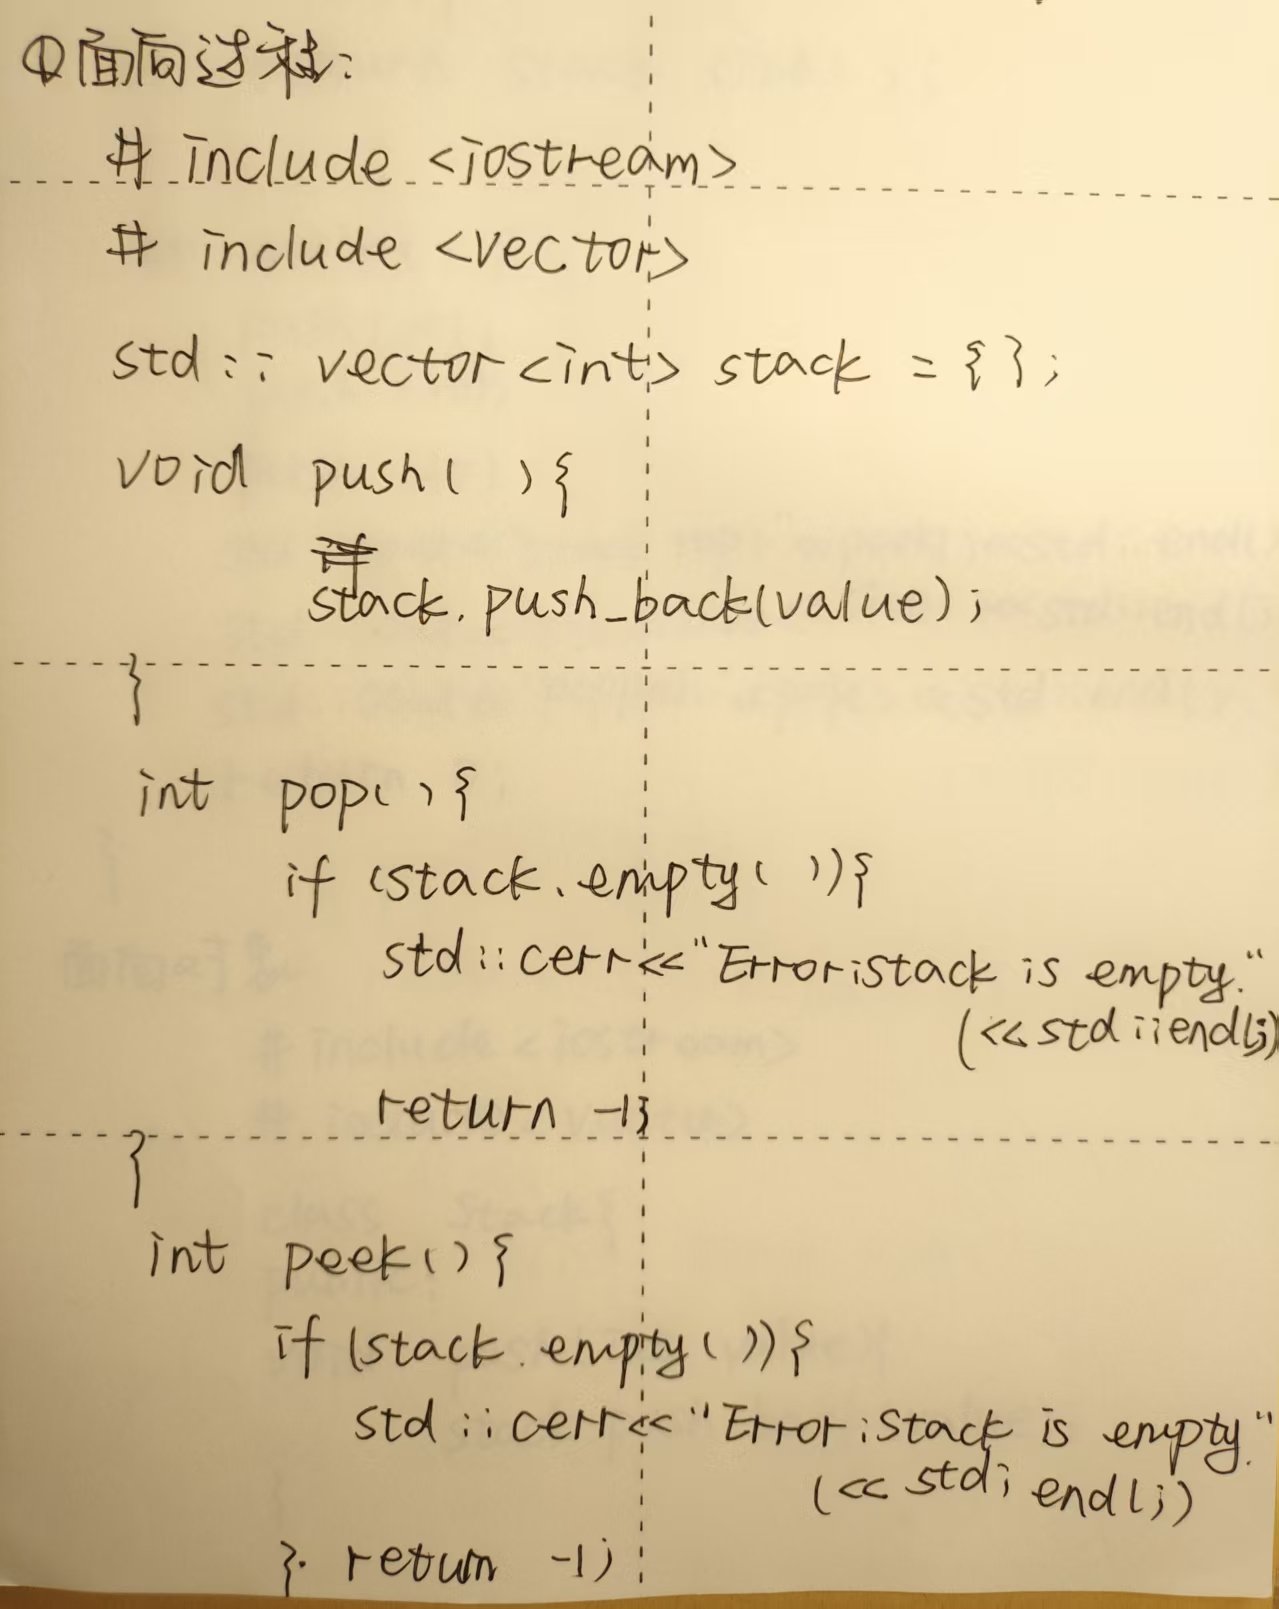 ①面向过程:
# include <iostream>
# include <vector>
std :: vector<int> stack = { };
void push( ){
stack. push_back(value);
}
int pop( ){
if (stack. empty( )){
std :: cerr<<"Error:stack is empty."
(<< std ::endl;)
return -1;
}
int peek( ){
if (stack. empty( )){
std :: cerr<<"Error:Stack is empty."
(<< std; endl;)
}. return -1;